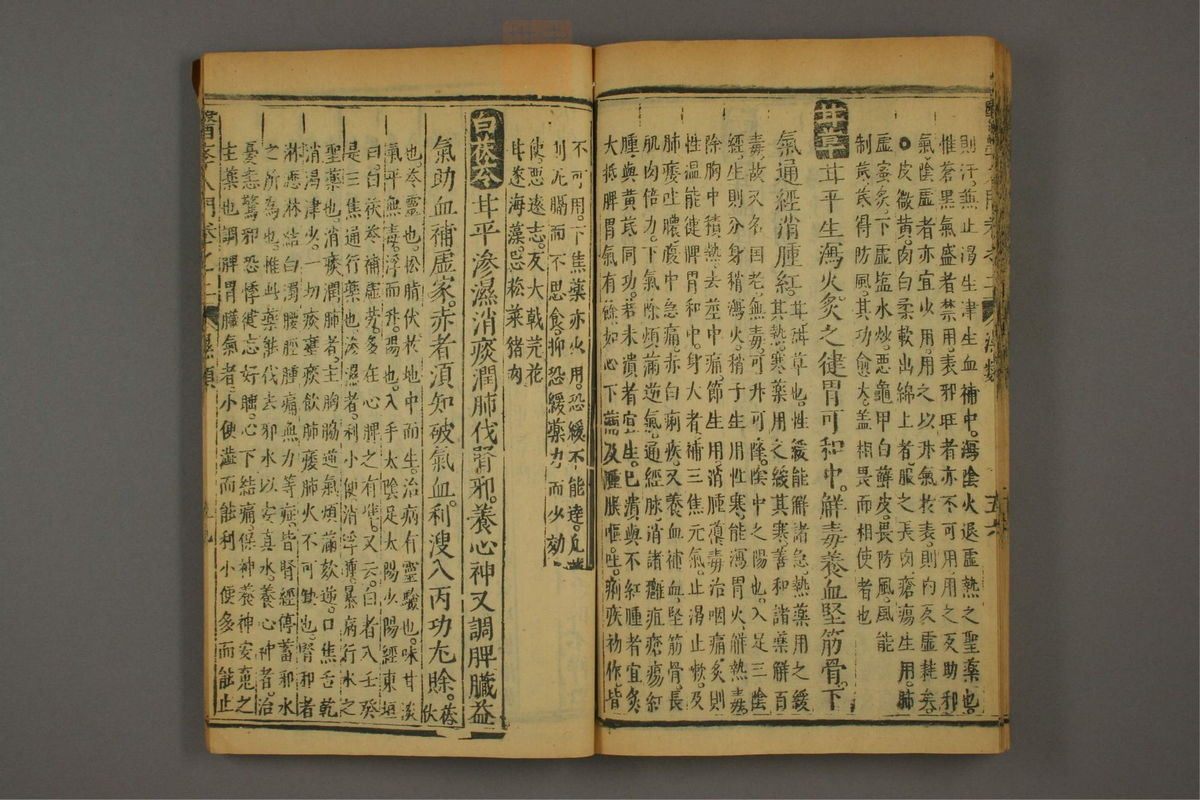 則汗。無止渴生津生血補中。瀉陰火退虛熱之聖藥也。
惟蒼黑氣盛者禁用。表邪旺者亦不可用。用之反助邪
氣。陰虛者亦宜少用。用之以升氣於表。則內反虛耗矣。
●皮微黃。肉白柔軟出綿上者。服之長肉。瘡瘍生用。肺
虛蜜炙。下虛塩水炒。惡龜甲白蘚皮。畏防風。風能
制芪。芪得防風。其功愈大。盖相畏而相使者也。
甘草 甘平生瀉火。炙之健胃可和中。解毒養血堅筋骨。下
氣通經消腫紅。甘甜草也。性緩能觧諸急。熱藥用之緩
其熱。寒藥用之緩其寒。善和諸藥觧百
毒。故又名国老。無毒。可升可降。陰中之陽也。入足三陰
經。生則分身稍瀉火。稍子生用性寒。能瀉胃火。觧熱毒。
除胸中積熱。去莖中痛。節生用。消腫導毒治咽痛。炙則
性温能健脾胃和中。身大者補三焦元氣。止渴止嗽。及
肺痿吐膿。腹中急痛。赤白痢疾。又養血補血。堅筋骨。長
肌肉倍力。下氣除煩滿逆氣。通經脉。消諸癰疽瘡瘍紅
腫。與黃芪同功。若未潰者宜生。已潰與不紅腫者宜炙。
大抵脾胃氣有餘。如心下滿及腫脹嘔吐。痢疾初作。皆
不可用。下焦藥亦少用。恐緩不能達。凡藥
則兀膈而不思食。抑恐緩藥力而少効
使。惡遠志。反大戟芫花
甘遂海藻。忌菘菜猪肉
白茯苓 甘平滲濕消痰潤肺伐腎邪。養心神又調脾臟。益
氣助血補虛家。赤者須知破氣血。利溲入丙功尤賖。茯
苓伏
也。苓靈也。松脂伏於地中而生。治病有靈驗也。味甘淡
氣平無毒。浮而升。陽也。入手太陰足太陽少陽經。東垣
曰。白茯苓補虛勞。多在心脾之有準。又云。白者入壬癸
是三焦通行藥也。滲濕者。利小便消浮腫。暴病行水之
聖藥也。消痰潤肺者。主胸脇逆氣煩滿欬逆。口焦舌乾
消渴津少。一切痰壅痰飲。肺痿肺火不可缺也。腎邪者
淋瀝林結白濁。腰脛腫痛無力等症。皆腎經停蓄邪水
之所為也。惟此藥能伐去邪水以安真水。養心神者。治
憂恚驚邪恐悸健忘好睡。心下結痛。保神養神安䰟之
主藥也。調脾胃臟氣者。小便澁而能利。小便多而能止
五六